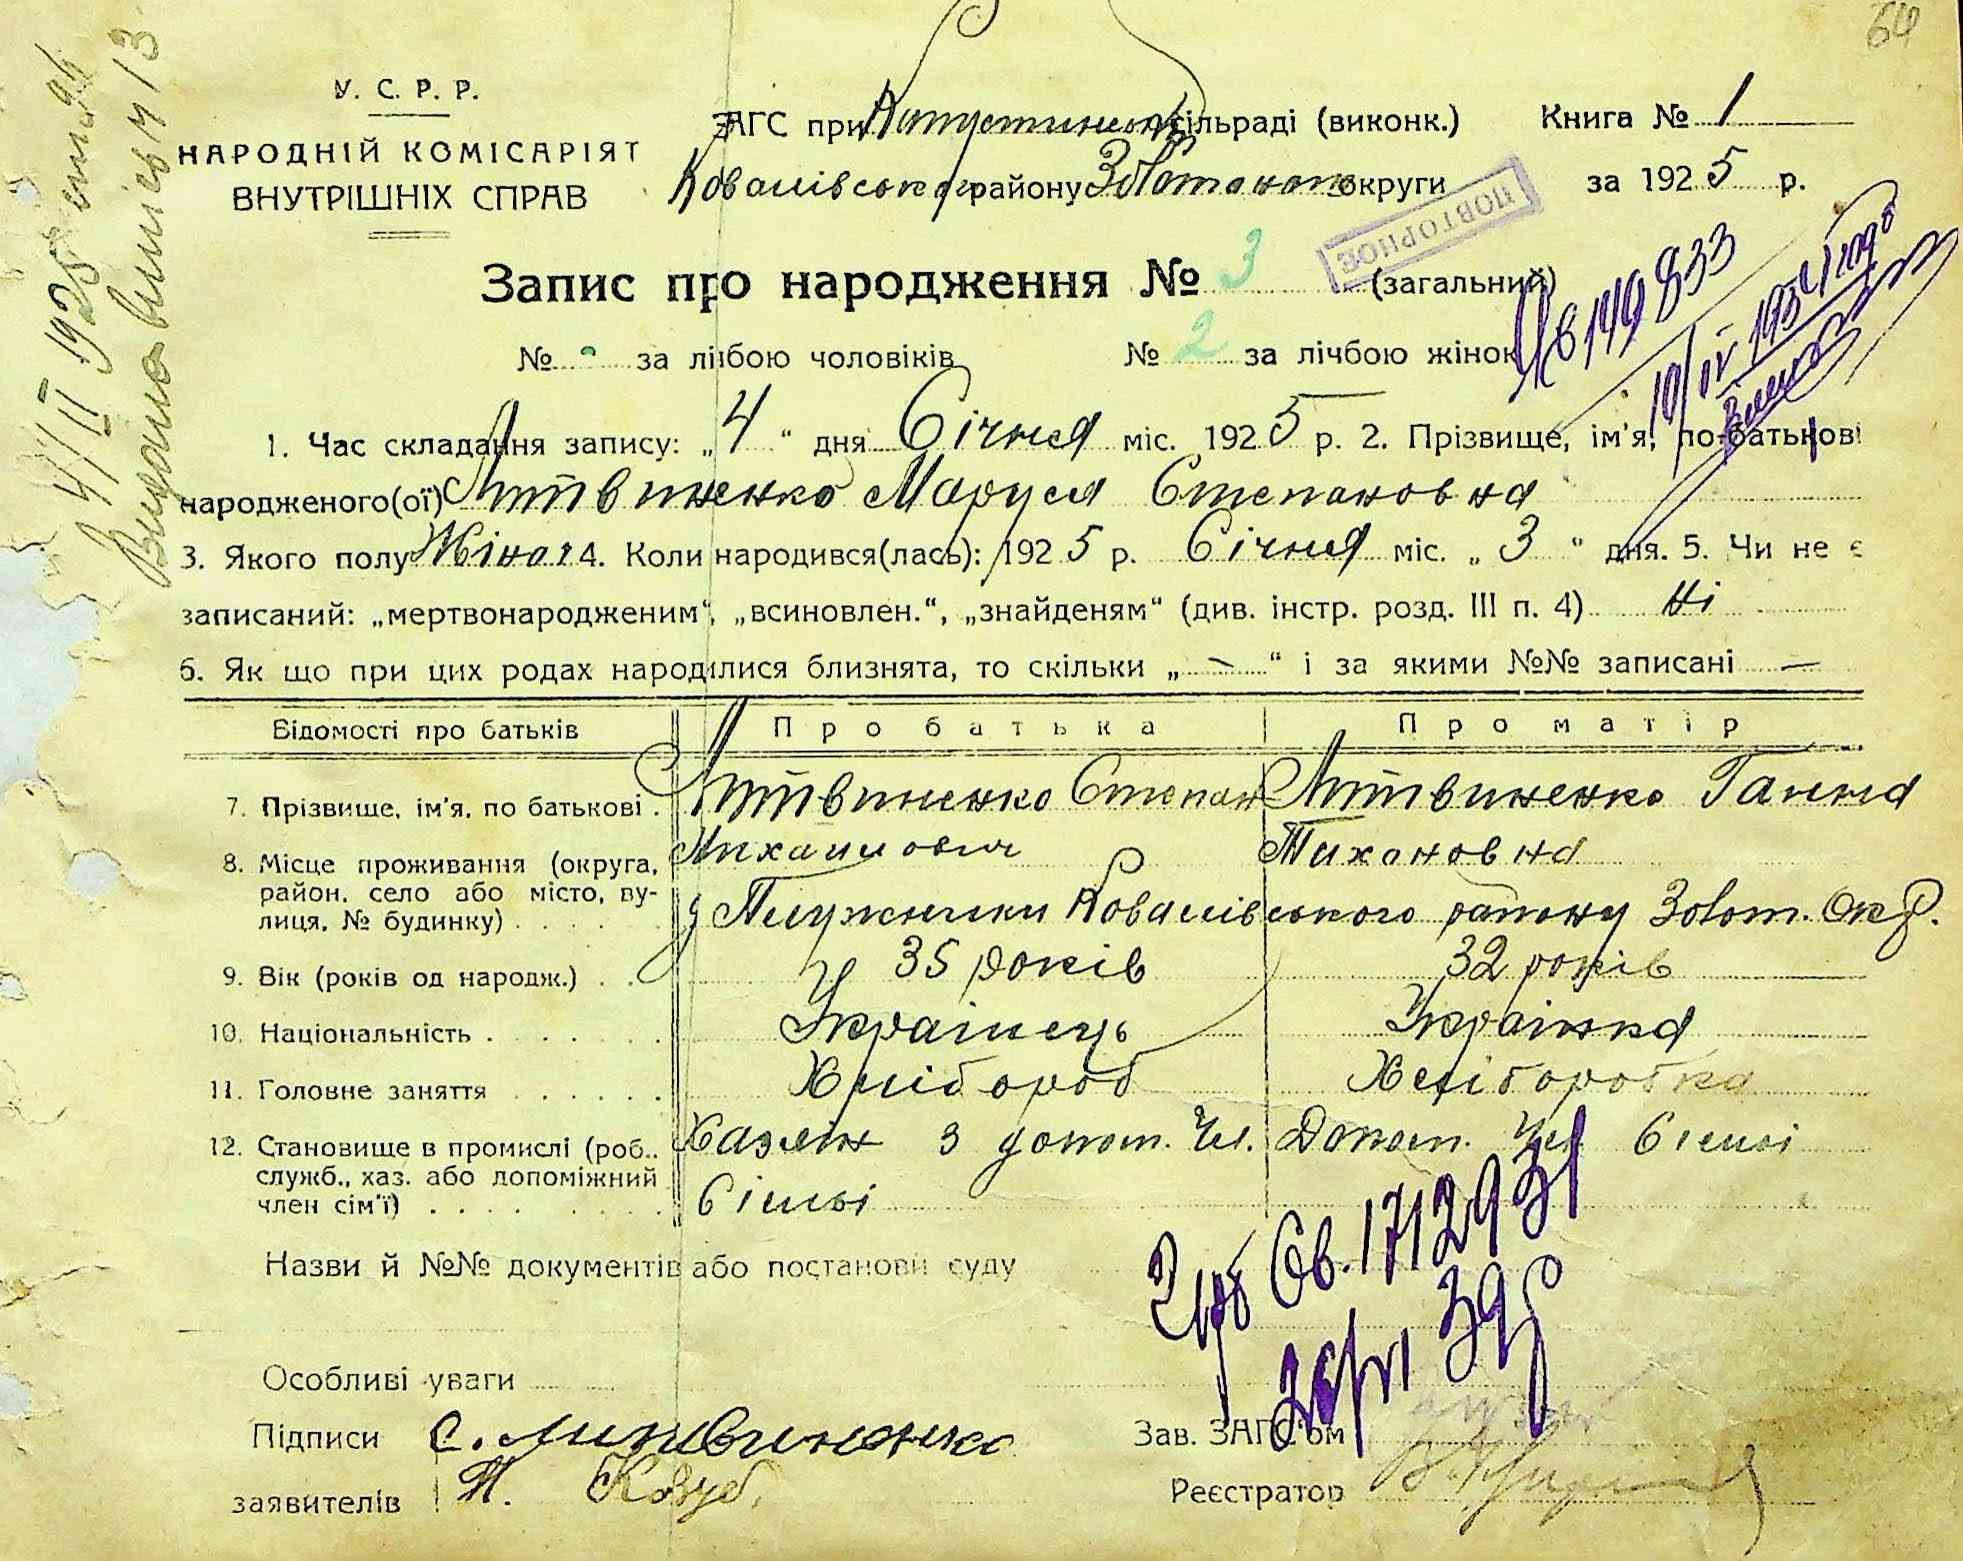 64
У. С. Р. Р.
НАРОДНІЙ КОМІСАРІЯТ
ВНУТРІШНІХ СПРАВ
ЗАГС при Капустинській сільраді (виконк.)
Книга № 1
Ковалівського району Золотонош округи
за 1925 р.
ПОВТОРНОЕ
Запис про народження № 3 (загальний)
№ - за лічбою чоловіків
№ 2 за лічбою жінок
149833
10/IV 1954 года
4/II 1925
1. Час складання запису: „4“ дня Січня міс. 1925 р. 2. Прізвище, ім'я, по-батькові
народженого(ої) Литвиненко Маруся Степановна
3. Якого полу Жіноч 4. Коли народився(лась): 1925 р. Січня міс. „3“ дня. 5. Чи не є
записаний: „мертвонародженим“, „всиновлен.“, „знайденям“ (див. інстр. розд. III п. 4) ні
6. Як що при цих родах народилися близнята, то скільки „—“ і за якими №№ записані —
Відомості про батьків
Про батька
Про матір
7. Прізвище, ім'я, по батькові .
Литвиненко Степан
Михайлович
Литвиненко Ганна
Тихоновна
8. Місце проживання (округа,
район, село або місто, ву-
лиця, № будинку) . . . .
Плужники Ковалівського району Золот. Окр.
9. Вік (років од народж.) . .
35 років
32 років
10. Національність . . . . . .
Українець
Українка
11. Головне заняття . . . . . .
Хлібороб
Хліборобка
12. Становище в промислі (роб.,
служб., хаз. або допоміжний
член сім'ї) . . . . . . . .
Хазяїн з допом. Чл.
Сім'ї
Допом. Чл. Сім'ї
Назви й №№ документів або постанови суду
Св. 1712931
Особливі уваги
Підписи
заявителів
С. Литвиненко
Зав. ЗАГС'ом
Реєстратор